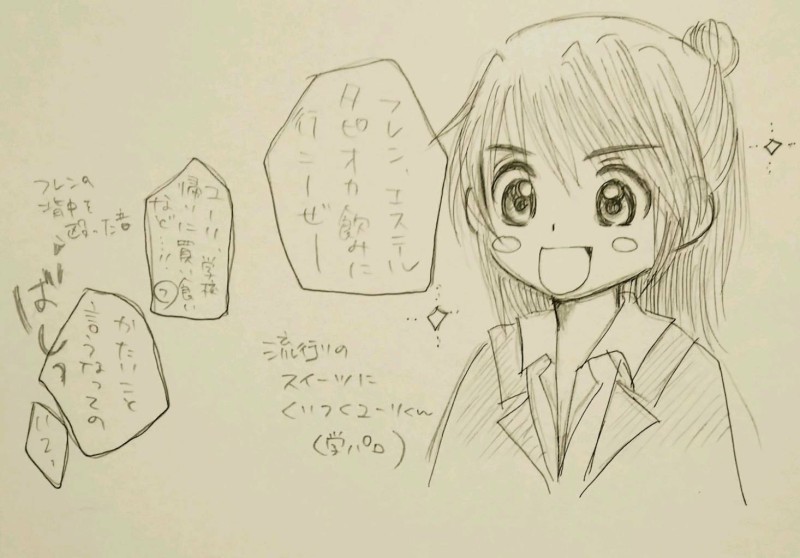 フレン、エステル
タピオカ飲みに
行こーぜー
ユーリ、学校
帰りに買い食い
など…!!
フ
フレンの
背中を
殴った音
ばしっ
かたいこと
言うなっての
いてっ
流行りの
スイーツに
くいつくユーリくん
(学パロ)